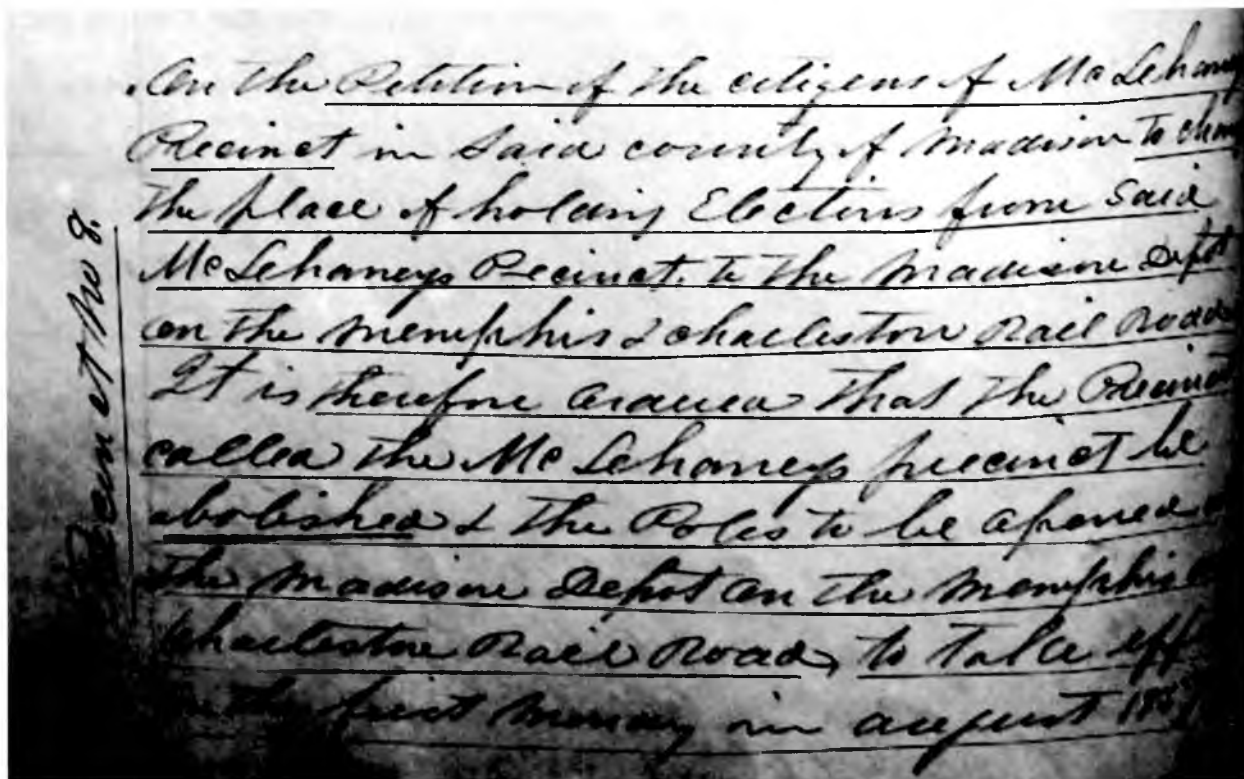 On the Petition of the citizens of McLehaney
Precinct in Said county of Madison to chan
the place of holding Elections from Said
McLehaneys Precinct to the Madison Depot
on the Memphis & Charleston Rail Road
It is therefore ordered that the Precinct
called the McLehaneys precinct be
abolished & the Poles to be opened
the Madison Depot on the Memphis
Charleston Rail Road, to take eff
the first Monday in august
Precinct No 8.